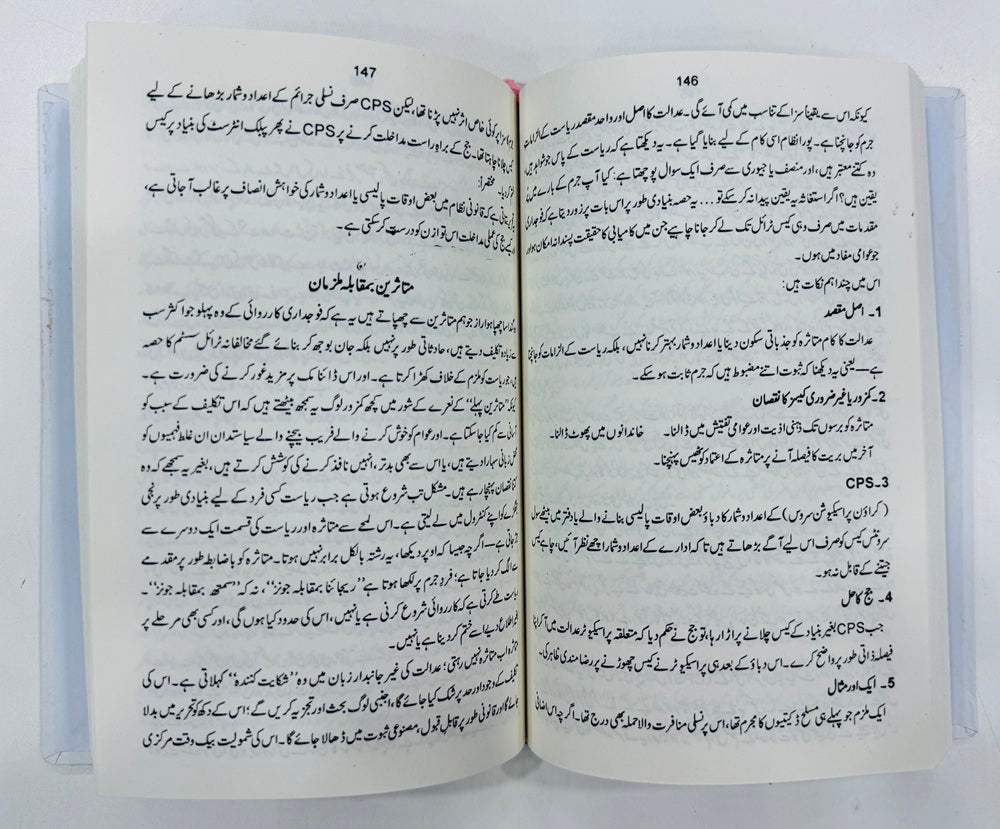 146
کیونکہ اس سے یقیناً سزا کے تناسب میں کمی آئے گی۔ عدالت کا اصل اور واحد مقصد ریاست کے الزامات
جرم کو جانچنا ہے۔ پورا نظام اسی کام کے لیے بنایا گیا ہے۔ یہ دیکھتا ہے کہ ریاست کے پاس جو شواہد ہیں،
وہ کتنے معتبر ہیں، اور منصف یا جیوری سے صرف ایک سوال پوچھتا ہے: کیا آپ جرم کے بارے میں
یقین ہیں؟ اگر استغاثہ یہ یقین پیدا نہ کر سکے تو... یہ حصہ بنیادی طور پر اس بات پر زور دیتا ہے کہ فوجداری
مقدمات میں صرف وہی کیس ٹرائل تک لے کر جانا چاہیے جن میں کامیابی کا حقیقت پسندانہ امکان ہو اور
جو عوامی مفاد میں ہوں۔
اس میں چند اہم نکات ہیں:
1۔ اصل مقصد
عدالت کا کام متاثرہ کو جذباتی سکون دینا یا اعداد و شمار بہتر کرنا نہیں، بلکہ ریاست کے الزامات کو جانچنا
ہے—یعنی یہ دیکھنا کہ ثبوت اتنے مضبوط ہیں کہ جرم ثابت ہو سکے۔
2۔ کمزور یا غیر ضروری کیسز کا نقصان
متاثرہ کو برسوں تک ذہنی اذیت اور عوامی تفتیش میں ڈالنا۔ خاندانوں میں پھوٹ ڈالنا۔
آخر میں بریت کا فیصلہ آنے پر متاثرہ کے اعتماد کو ٹھیس پہنچنا۔
3۔CPS
(کراؤن پراسیکیوشن سروس) کے اعداد و شمار کا دباؤ بعض اوقات پالیسی بنانے والے یا دفتر میں بیٹھے سول
سرونٹس کیس کو صرف اس لیے آگے بڑھاتے ہیں تاکہ ادارے کے اعداد و شمار اچھے نظر آئیں، چاہے کیس
جیتنے کے قابل نہ ہو۔
4۔ جج کا حل
جب CPS بغیر بنیاد کے کیس چلانے پر اڑا رہا، تو جج نے حکم دیا کہ متعلقہ پراسیکیوٹر عدالت میں آ کر اپنا
فیصلہ ذاتی طور پر واضح کرے۔ اس دباؤ کے بعد ہی پراسیکیوٹر نے کیس چھوڑنے پر رضامندی ظاہر کی۔
5۔ ایک اور مثال
ایک ملزم جو پہلے ہی مسلح ڈکیتیوں کا مجرم تھا، اس پر نسلی منافرت والا حملہ بھی درج تھا۔ اگرچہ اس اضافی
147
سزا پر کوئی خاص اثر نہیں پڑنا تھا، لیکن CPS صرف نسلی جرائم کے اعداد و شمار بڑھانے کے لیے
چلانا چاہتا تھا۔ جج کے براہِ راست مداخلت کرنے پر CPS نے پھر پبلک انٹرسٹ کی بنیاد پر کیس
مختصراً:
ہے کہ قانونی نظام میں بعض اوقات پالیسی یا اعداد و شمار کی خواہش انصاف پر غالب آ جاتی ہے،
جج کی عملی مداخلت اس توازن کو درست کر سکتی ہے۔
متاثرین بمقابلہ ملزمان
چھپا ہوا راز جو ہم متاثرین سے چھپاتے ہیں یہ ہے کہ فوجداری کارروائی کے وہ پہلو جو اکثر سب
سے زیادہ تکلیف دیتے ہیں، حادثاتی طور پر نہیں بلکہ جان بوجھ کر بنائے گئے مخالفانہ ٹرائل سسٹم کا حصہ
ہیں، جو ریاست کو ملزم کے خلاف کھڑا کرتا ہے۔ اور اس ڈائنامک پر مزید غور کرنے کی ضرورت ہے۔
کیونکہ ”متاثرین پہلے“ کے نعرے کے شور میں کچھ کمزور لوگ یہ سمجھ بیٹھتے ہیں کہ اس تکلیف کے سبب کو
آسانی سے کم کیا جا سکتا ہے۔ اور عوام کو خوش کرنے والے فریب بیچنے والے سیاستدان ان غلط فہمیوں کو
زبانی سہارا دیتے ہیں، یا اس سے بھی بدتر، انہیں نافذ کرنے کی کوشش کرتے ہیں، بغیر یہ سمجھے کہ وہ
کتنا نقصان پہنچا رہے ہیں۔ مشکل تب شروع ہوتی ہے جب ریاست کسی فرد کے لیے بنیادی طور پر نجی
جھگڑے کو اپنے کنٹرول میں لے لیتی ہے۔ اس لمحے سے متاثرہ اور ریاست کی قسمت ایک دوسرے سے
جاتی ہے—اگرچہ جیسا کہ اوپر دیکھا، یہ رشتہ بالکل برابر نہیں ہوتا۔ متاثرہ کو باضابطہ طور پر مقدمے
سے الگ کر دیا جاتا ہے؛ فردِ جرم پر لکھا ہوتا ہے ”ریجائنا بمقابلہ جونز“، نہ کہ ”سمتھ بمقابلہ جونز“۔
ریاست طے کرتی ہے کہ کارروائی شروع کرنی ہے یا نہیں، اس کی حدود کیا ہوں گی، اور کسی بھی مرحلے پر
بغیر اطلاع دیے اسے ختم کر دینا ہے یا نہیں۔
متاثرہ اب متاثرہ نہیں رہتی؛ عدالت کی غیر جانبدار زبان میں وہ ”شکایت کنندہ“ کہلاتی ہے۔ اس کی
تکلیف کے وجود اور حد پر شک کیا جائے گا، اجنبی لوگ بحث اور تجزیہ کریں گے؛ اس کے دکھ کو تحریر میں بدلا
جائے گا اور قانونی طور پر قابلِ قبول، مصنوعی ثبوت میں ڈھالا جائے گا۔ اس کی شمولیت بیک وقت مرکزی